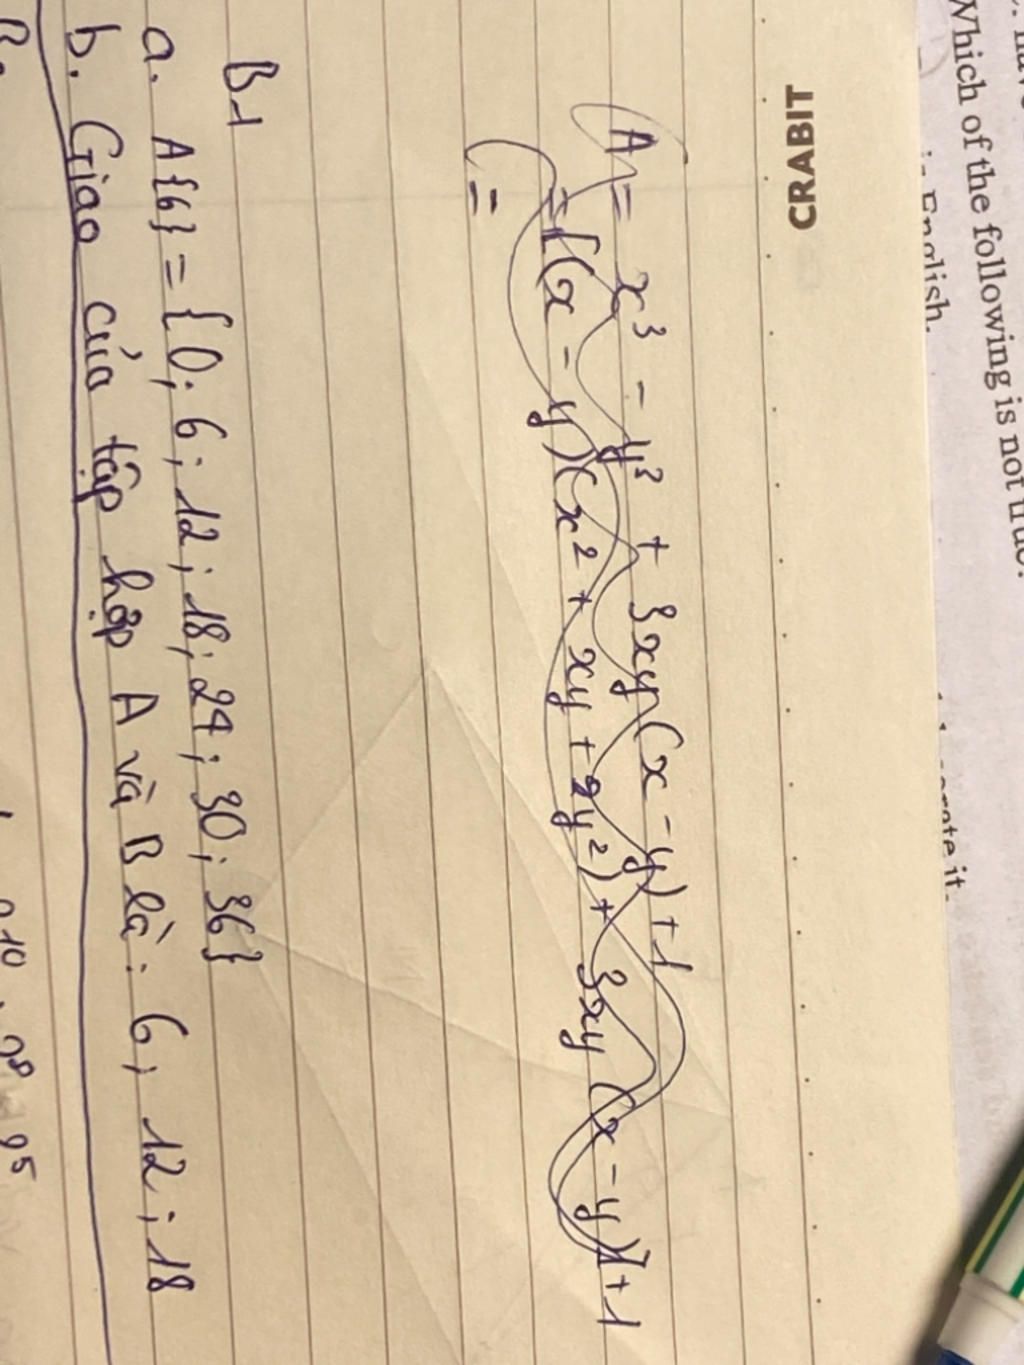 Which of the following is not true?
English.
CRABIT
A = x³ - y³ + 3xy(x - y) + 1
= [(x - y)(x² + xy + 2y²) + 3xy(x - y)] + 1
=
B1
a. A{6} = {0; 6; 12; 18; 24; 30; 36}
b. Giao của tập hợp A và B là: 6; 12; 18